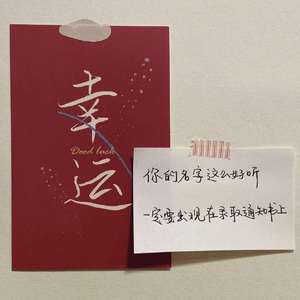 幸
Good luck
运
你的名字这么好听
一定要出现在录取通知书上